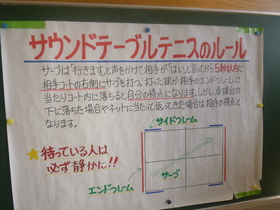 サウンドテーブルテニスのルール
サーブは「行きます」と声をかけて相手が「はい」と言ってから5秒以内に
相手コートの右側にサーブを打つ。打った球が相手のエンドフレームに
当たりコート内に落ちると自分の得点になります。しかし、卓球台の
下に落ちた場合やネットに当たって返ってきた場合は相手の得点と
なります。
★待っている人は
必ず静かに!!
サイドフレーム
サーブ
エンドフレーム